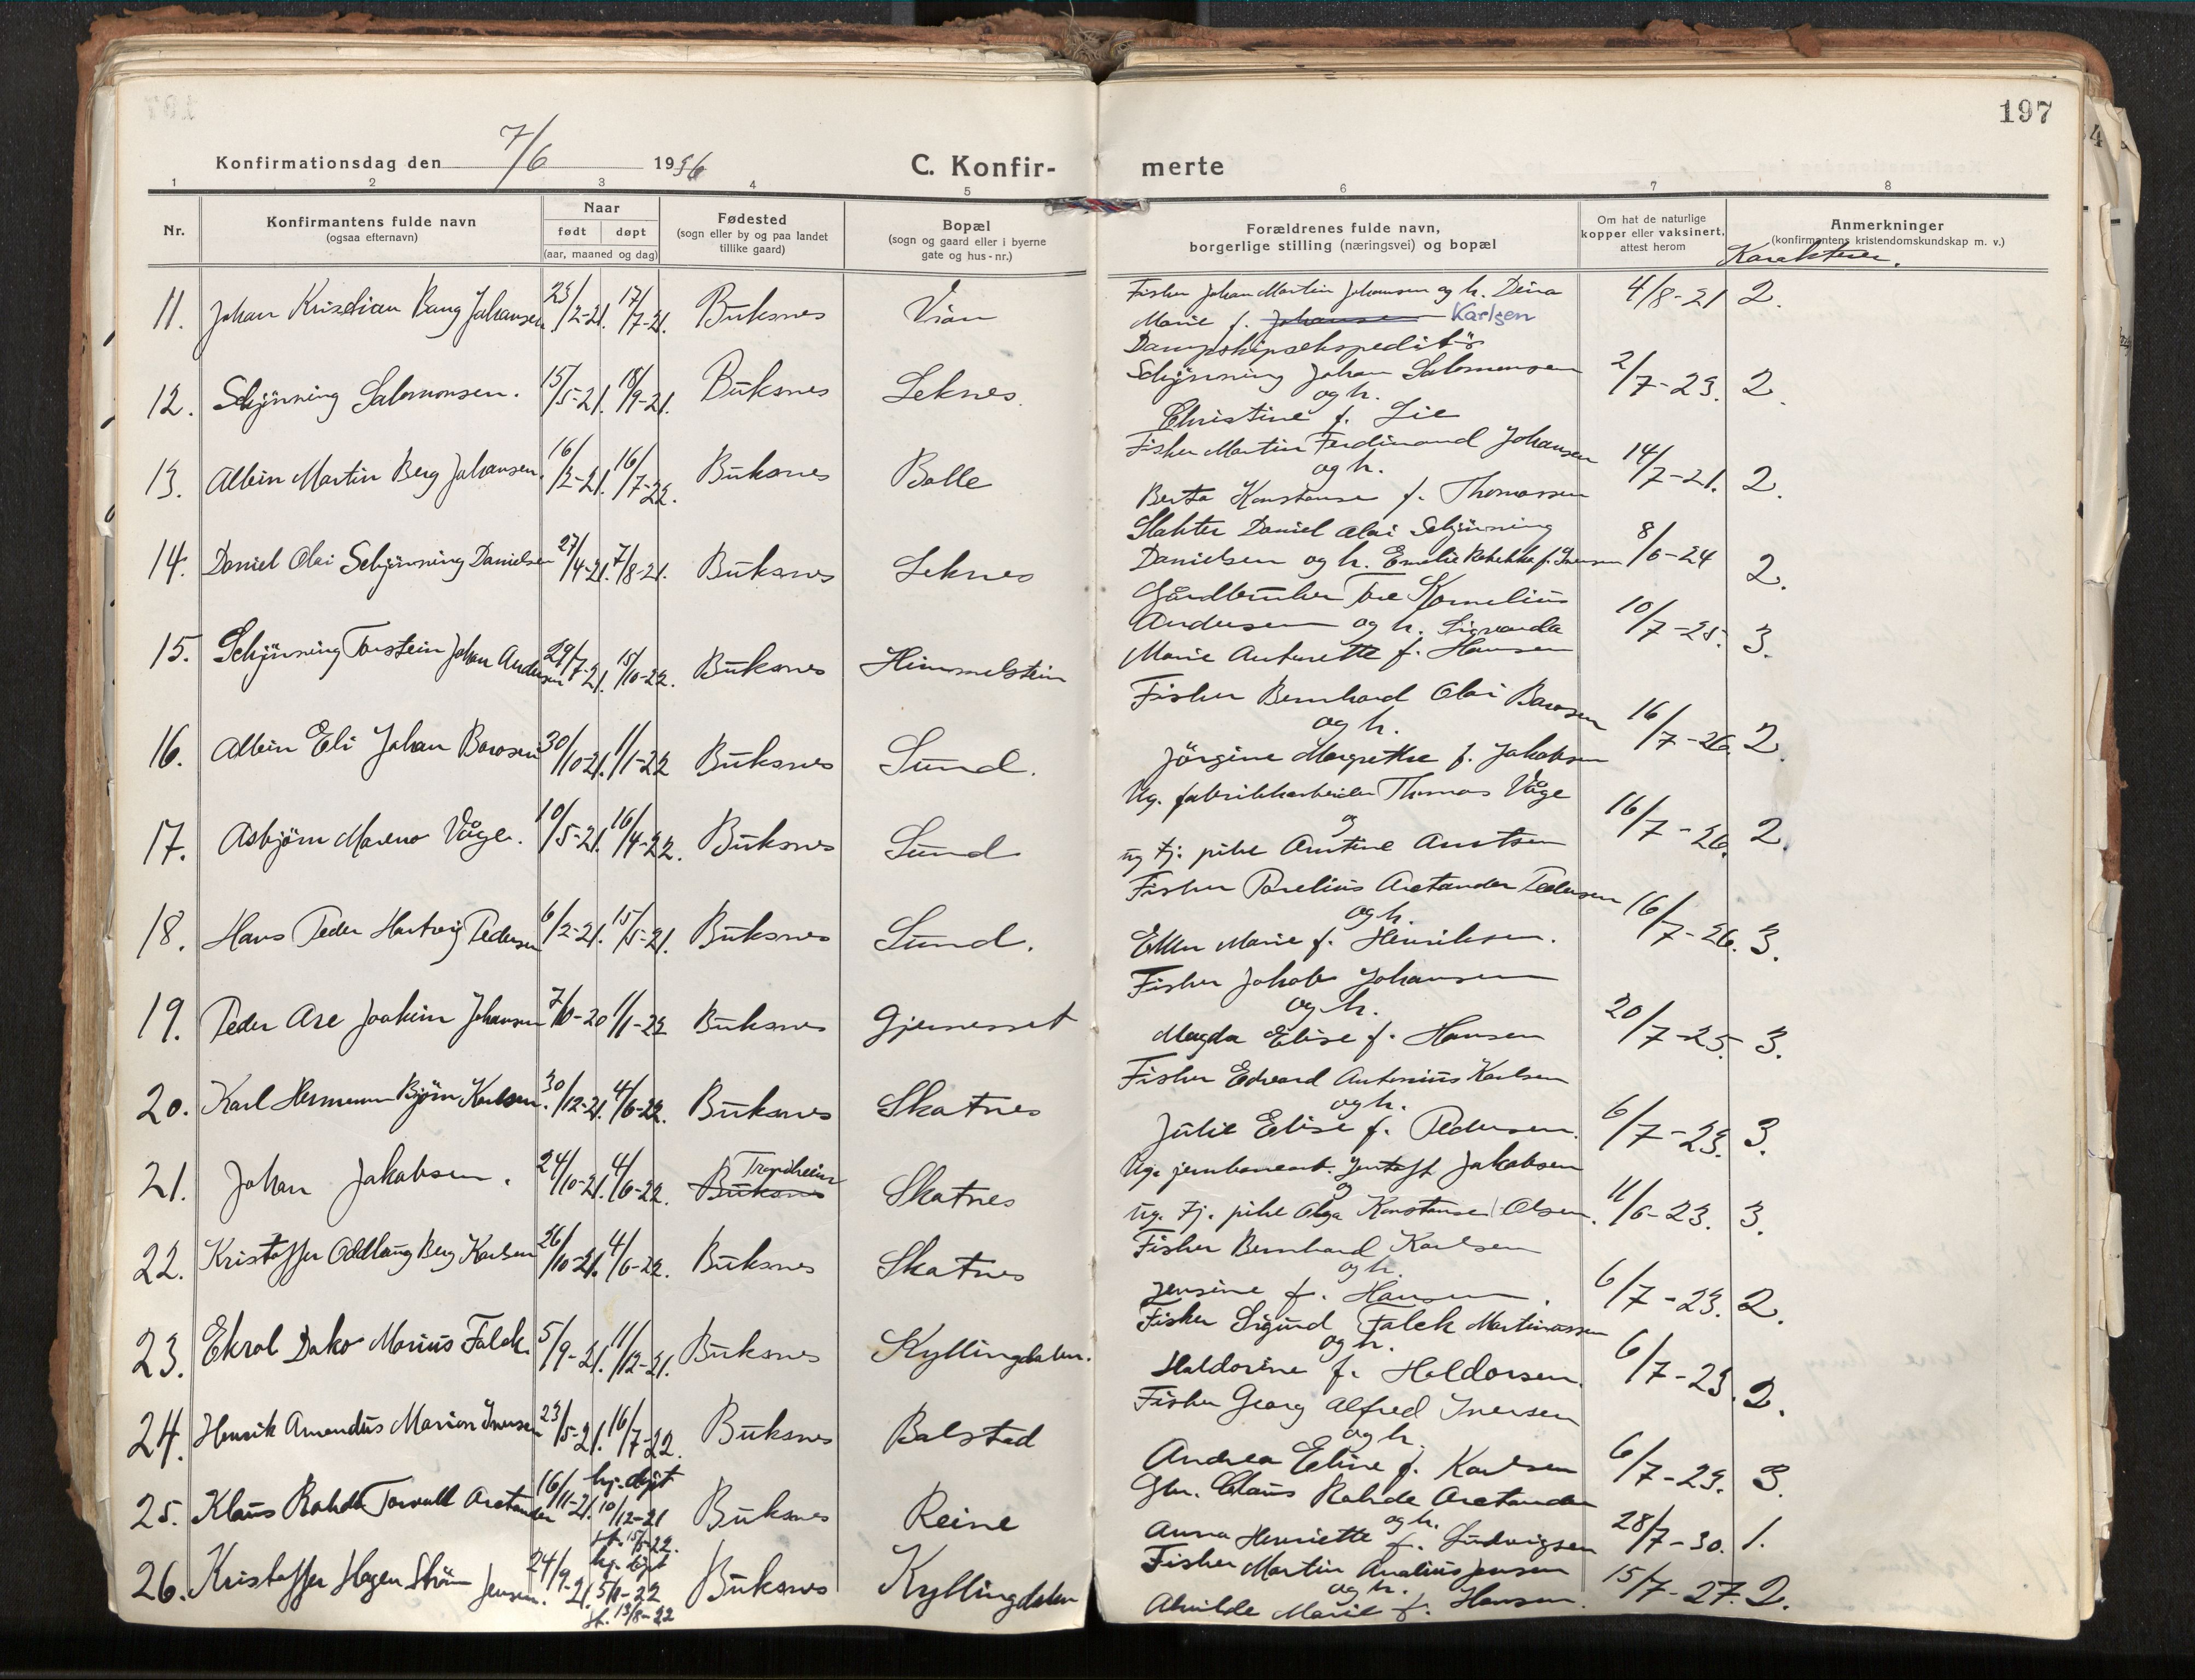 197
Konfirmationsdag den 7/6 1936
C. Konfir-
merte
1 2 3 4 5 6 7 8
Nr.
Konfirmantens fulde navn
(ogsaa efternavn)
Naar
født døpt
(aar, maaned og dag)
Fødested
(sogn eller by og paa landet
tillike gaard)
Bopæl
(sogn og gaard eller i byerne
gate og hus-nr.)
Forældrenes fulde navn,
borgerlige stilling (næringsvei) og bopæl
Om hat de naturlige
kopper eller vaksinert,
attest herom
Anmerkninger
(konfirmantens kristendomskundskap m. v.)
Karakterer.
11. Johan Kristian Bang Johansen 23/2-21. 17/7-21. Buksnes Vian
Fisker Johan Martin Johansen og h. Dina
Marie f. Johansen Karlsen
4/8-21 2.
12. Schjønning Salomonsen. 15/5-21. 18/9-21. Buksnes Leknes.
Dampskipsekspeditör
Schjönning Johan Salomonsen
og h.
Christine f. Lie
2/7-23. 2.
13. Albin Martin Berg Johansen. 16/2-21. 16/7-22. Buksnes Bolle
Fisker Martin Ferdinand Johansen
og h.
Berta Konstanse f. Thomassen
14/7-21. 2.
14. Daniel Olai Schjønning Danielsen 27/4-21. 7/8-21. Buksnes Leknes
Slakter Daniel Olai Schjönning
Danielsen og h. Emelie Rebekka f. Iversen
8/6-24 2.
15. Schjønning Torstein Johan Andersen 29/7-21. 15/10-22. Buksnes Himmelstein
Gårdbruker Tore Kornelius
Andersen og h. Sigvarda
Marie Antonette f. Hansen
10/7-25. 3.
16. Albin Eli Johan Barosen 30/10-21. 1/1-22 Buksnes Sund.
Fisker Bernhard Olai Barosen
og h.
Jörgine Margrethe f. Jakobsen
16/7-26. 2.
17. Asbjörn Mareno Våge. 10/5-21. 16/4-22. Buksnes Sund
Ug. fabrikkarbeider Thomas Våge
og
ug tj. pike Arntine Arntsen
16/7-26. 2.
18. Hans Peder Hartvig Pedersen 6/2-21. 15/5-21. Buksnes Sund.
Fisker Parelius Aretander Pedersen
og h.
Ellen Marie f. Henriksen.
16/7-26. 3.
19. Peder Are Joakim Johansen 7/10-20 1/1-22 Buksnes Gjerneset
Fisker Jakob Johansen
og h.
Magda Elise f. Hansen
20/7-25. 3.
20. Karl Hermann Bjørn Karlsen. 30/12-21. 4/6-22. Buksnes Skatnes
Fisker Edvard Antonius Karlsen
og h.
Julie Elise f. Pedersen.
6/7-23. 3.
21. Johan Jakobsen. 24/10-21. 4/6-22. Trondheim Buksnes Skatnes
Ug. jernbanearb. Gustaff Jakobsen
og
ug. tj. pike Olga Konstanse Olsen.
11/6-23. 3.
22. Kristoffer Oddlaug Berg Karlsen 26/10-21. 4/6-22. Buksnes Skatnes
Fisker Bernhard Karlsen
og h.
Jensine f. Hansen.
6/7-23. 2.
23. Ekrol Dako Marius Falck. 5/9-21. 11/12-21. Buksnes Kyllingdalen.
Fisker Sigurd Falck Martinussen
og h.
Haldorine f. Haldorsen.
6/7-23. 2.
24. Henrik Amandus Marion Iversen 23/5-21. 16/7-22. Buksnes Balstad
Fisker Georg Alfred Iversen
og h.
Andrea Eline f. Karlsen
6/7-23. 3.
25. Klaus Rohde Torvald Aretander 16/11-21. hj. døpt 10/12-21 st. 15/8-22. Buksnes Reine
Gbr. Claus Rohde Aretander
og h.
Anna Henriette f. Ludvigsen
28/7-30. 1.
26. Kristoffer Hagen Strøm Jensen. 24/9-21. hj. døpt 5/1-22 st. 13/8-22 Buksnes Kyllingdalen
Fisker Martin Analius Jensen
og h.
Alvilde Marie f. Hansen.
15/7-27. 2.